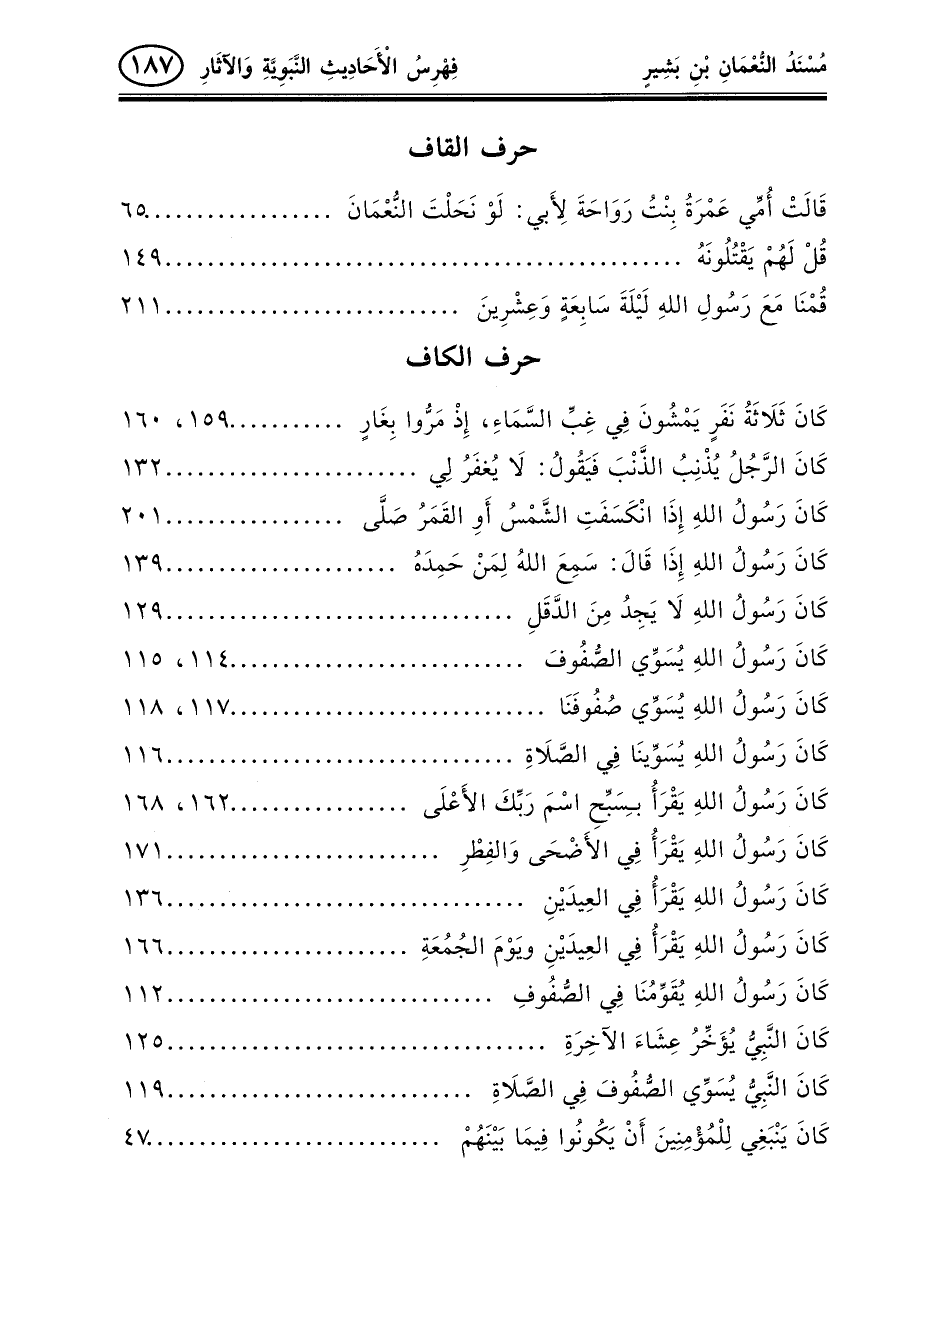 مُسْنَدُ النُّعْمَانِ بْنِ بَشِيرٍ فِهْرِسُ الْأَحَادِيثِ النَّبَوِيَّةِ وَالآثَارِ ١٨٧
حرف القاف
قَالَتْ أُمِّي عَمْرَةُ بِنْتُ رَوَاحَةَ لِأَبي: لَوْ نَحَلْتَ النُّعْمَانَ ..................٦٥
قُلْ لَهُمْ يَقْتُلُونَهُ ..................................................١٤٩
قُمْنَا مَعَ رَسُولِ اللهِ لَيْلَةَ سَابِعَةٍ وَعِشْرِينَ ............................٢١١
حرف الكاف
كَانَ ثَلَاثَةُ نَفَرٍ يَمْشُونَ فِي غِبِّ السَّمَاءِ، إِذْ مَرُّوا بِغَارٍ ...........١٥٩، ١٦٠
كَانَ الرَّجُلُ يُذْنِبُ الذَّنْبَ فَيَقُولُ: لَا يُغفَرُ لِي ........................١٣٢
كَانَ رَسُولُ اللهِ إِذَا انْكَسَفَتِ الشَّمْسُ أَوِ القَمَرُ صَلَّى .................٢٠١
كَانَ رَسُولُ اللهِ إِذَا قَالَ: سَمِعَ اللهُ لِمَنْ حَمِدَهُ ......................١٣٩
كَانَ رَسُولُ اللهِ لَا يَجِدُ مِنَ الدَّقَلِ .................................١٢٩
كَانَ رَسُولُ اللهِ يُسَوِّي الصُّفُوفَ ............................١١٤، ١١٥
كَانَ رَسُولُ اللهِ يُسَوِّي صُفُوفَنَا ..............................١١٧، ١١٨
كَانَ رَسُولُ اللهِ يُسَوِّينَا فِي الصَّلَاةِ .................................١١٦
كَانَ رَسُولُ اللهِ يَقْرَأُ بِسَبِّحِ اسْمَ رَبِّكَ الأَعْلَى .................١٦٢، ١٦٨
كَانَ رَسُولُ اللهِ يَقْرَأُ فِي الأَضْحَى وَالفِطْرِ ..........................١٧١
كَانَ رَسُولُ اللهِ يَقْرَأُ فِي العِيدَيْنِ ..................................١٣٦
كَانَ رَسُولُ اللهِ يَقْرَأُ فِي العِيدَيْنِ ويَوْمَ الجُمُعَةِ .......................١٦٦
كَانَ رَسُولُ اللهِ يُقَوِّمُنَا فِي الصُّفُوفِ ...............................١١٢
كَانَ النَّبِيُّ يُؤَخِّرُ عِشَاءَ الآخِرَةِ ....................................١٢٥
كَانَ النَّبِيُّ يُسَوِّي الصُّفُوفَ فِي الصَّلَاةِ .............................١١٩
كَانَ يَنْبَغِي لِلْمُؤْمِنِينَ أَنْ يَكُونُوا فِيمَا بَيْنَهُمْ ............................٤٧